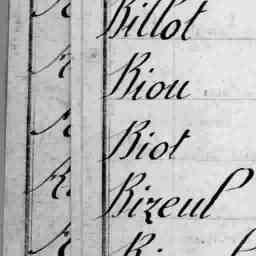 Billot
Biou
Biot
Bizeul